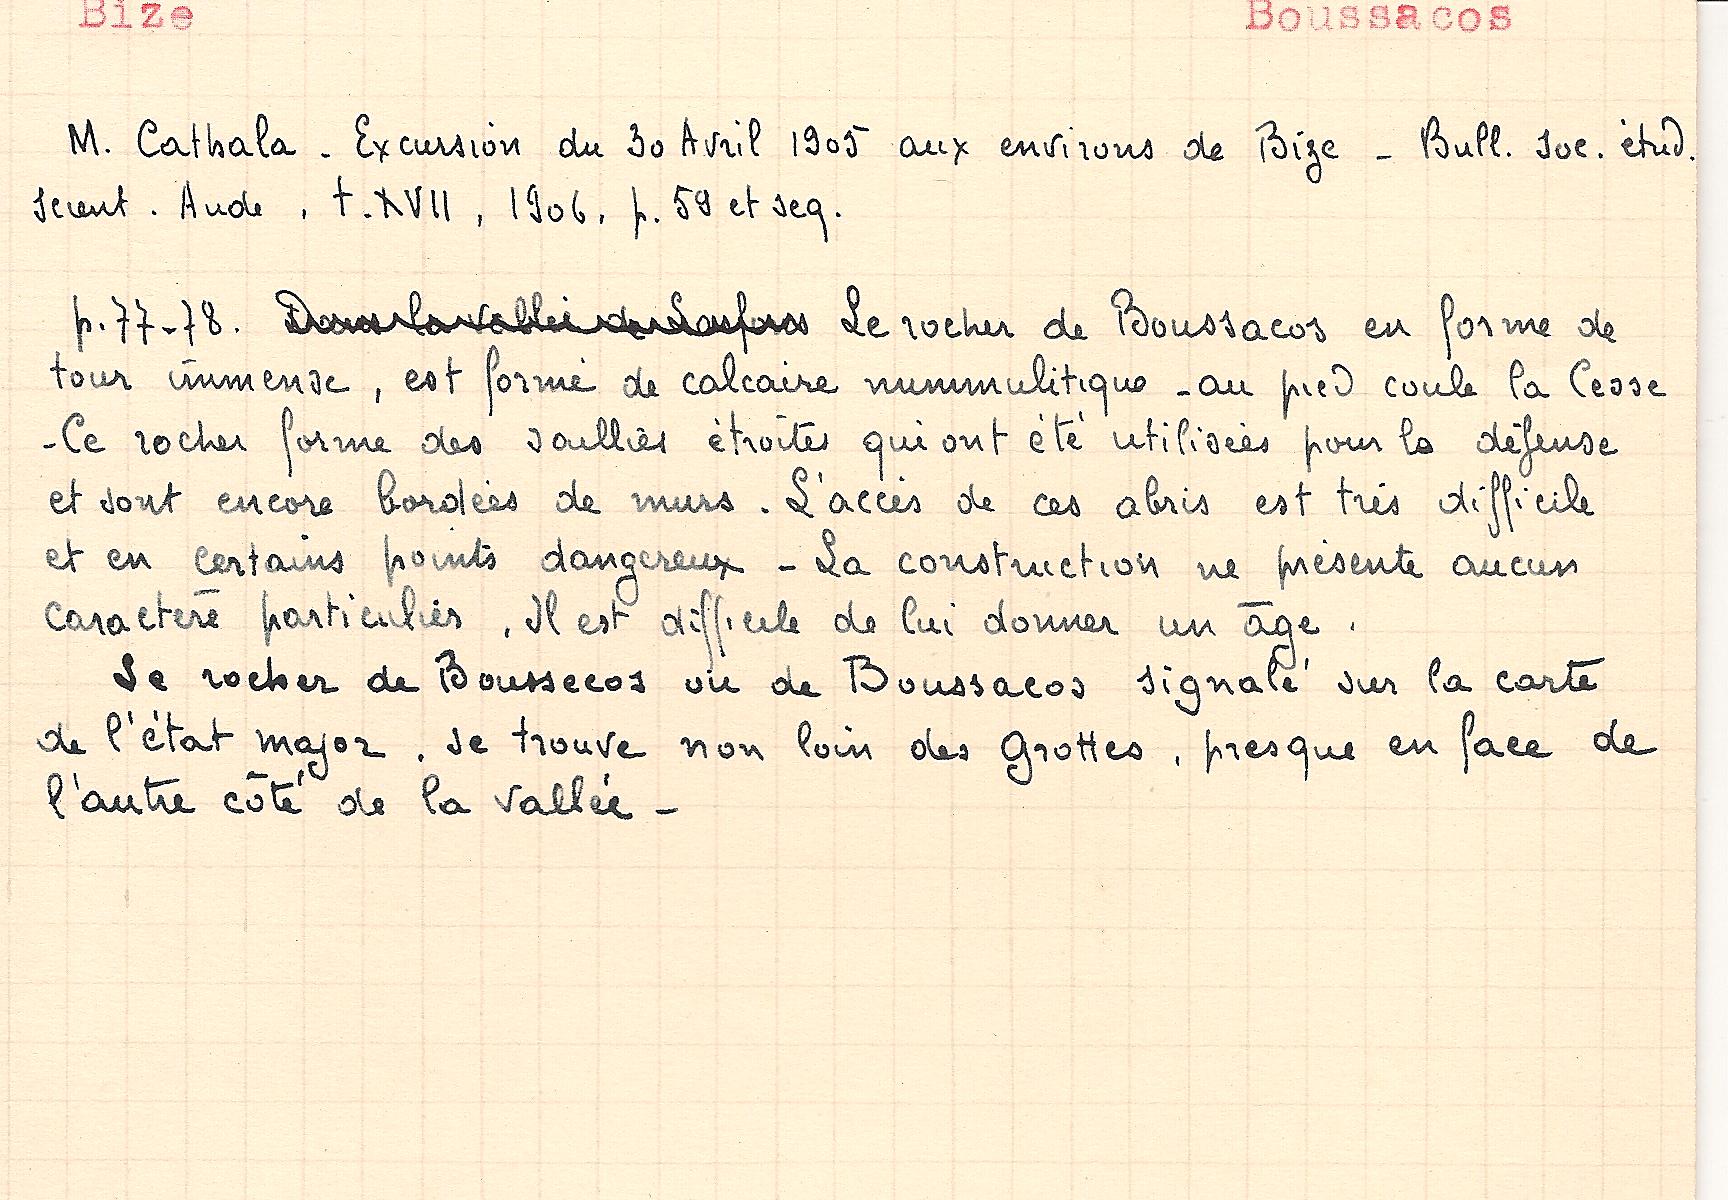 Bize Boussacos
M. Cathala . Excursion du 30 Avril 1905 aux environs de Bize - Bull. Soc. étud.
scient . Aude , t. XVII , 1906, p. 59 et seq.
p. 77-78. Dans la vallée de Le rocher de Boussacos en forme de
tour immense , est formé de calcaire nummulitique - au pied coule la Cesse
- Ce rocher forme des saulliès étroites qui ont été utilisées pour la défense
et sont encore bordées de murs . L'accès de ces abris est très difficile
et en certains points dangereux - La construction ne présente aucun
caractère particulier , il est difficile de lui donner un âge .
Le rocher de Boussecos ou de Boussacos signalé sur la carte
de l'état major , se trouve non loin des Grottes , presque en face de
l'autre côté de la vallée -